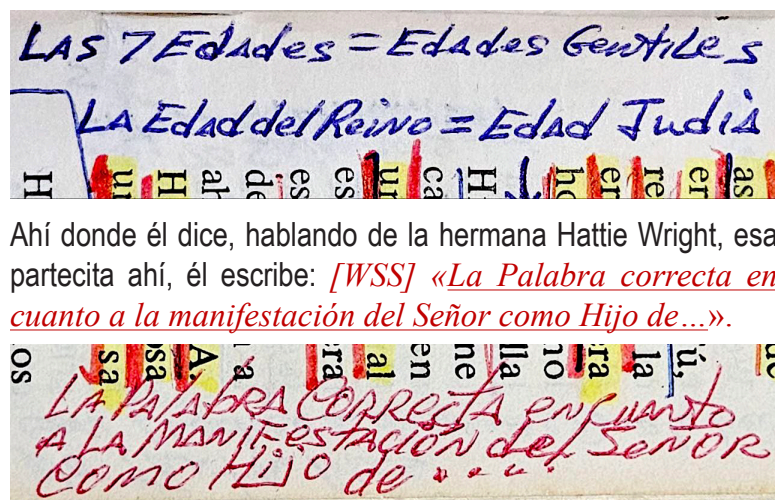 LAS 7 Edades = Edades Gentiles
LA Edad del Reino = Edad Judia
Ahí donde él dice, hablando de la hermana Hattie Wright, esa
partecita ahí, él escribe: [WSS] «La Palabra correcta en
cuanto a la manifestación del Señor como Hijo de…».
LA PALABRA CORRECTA EN CUANTO
A LA MANIFESTACIÓN del SEÑOR
COMO HIJO de . . . .